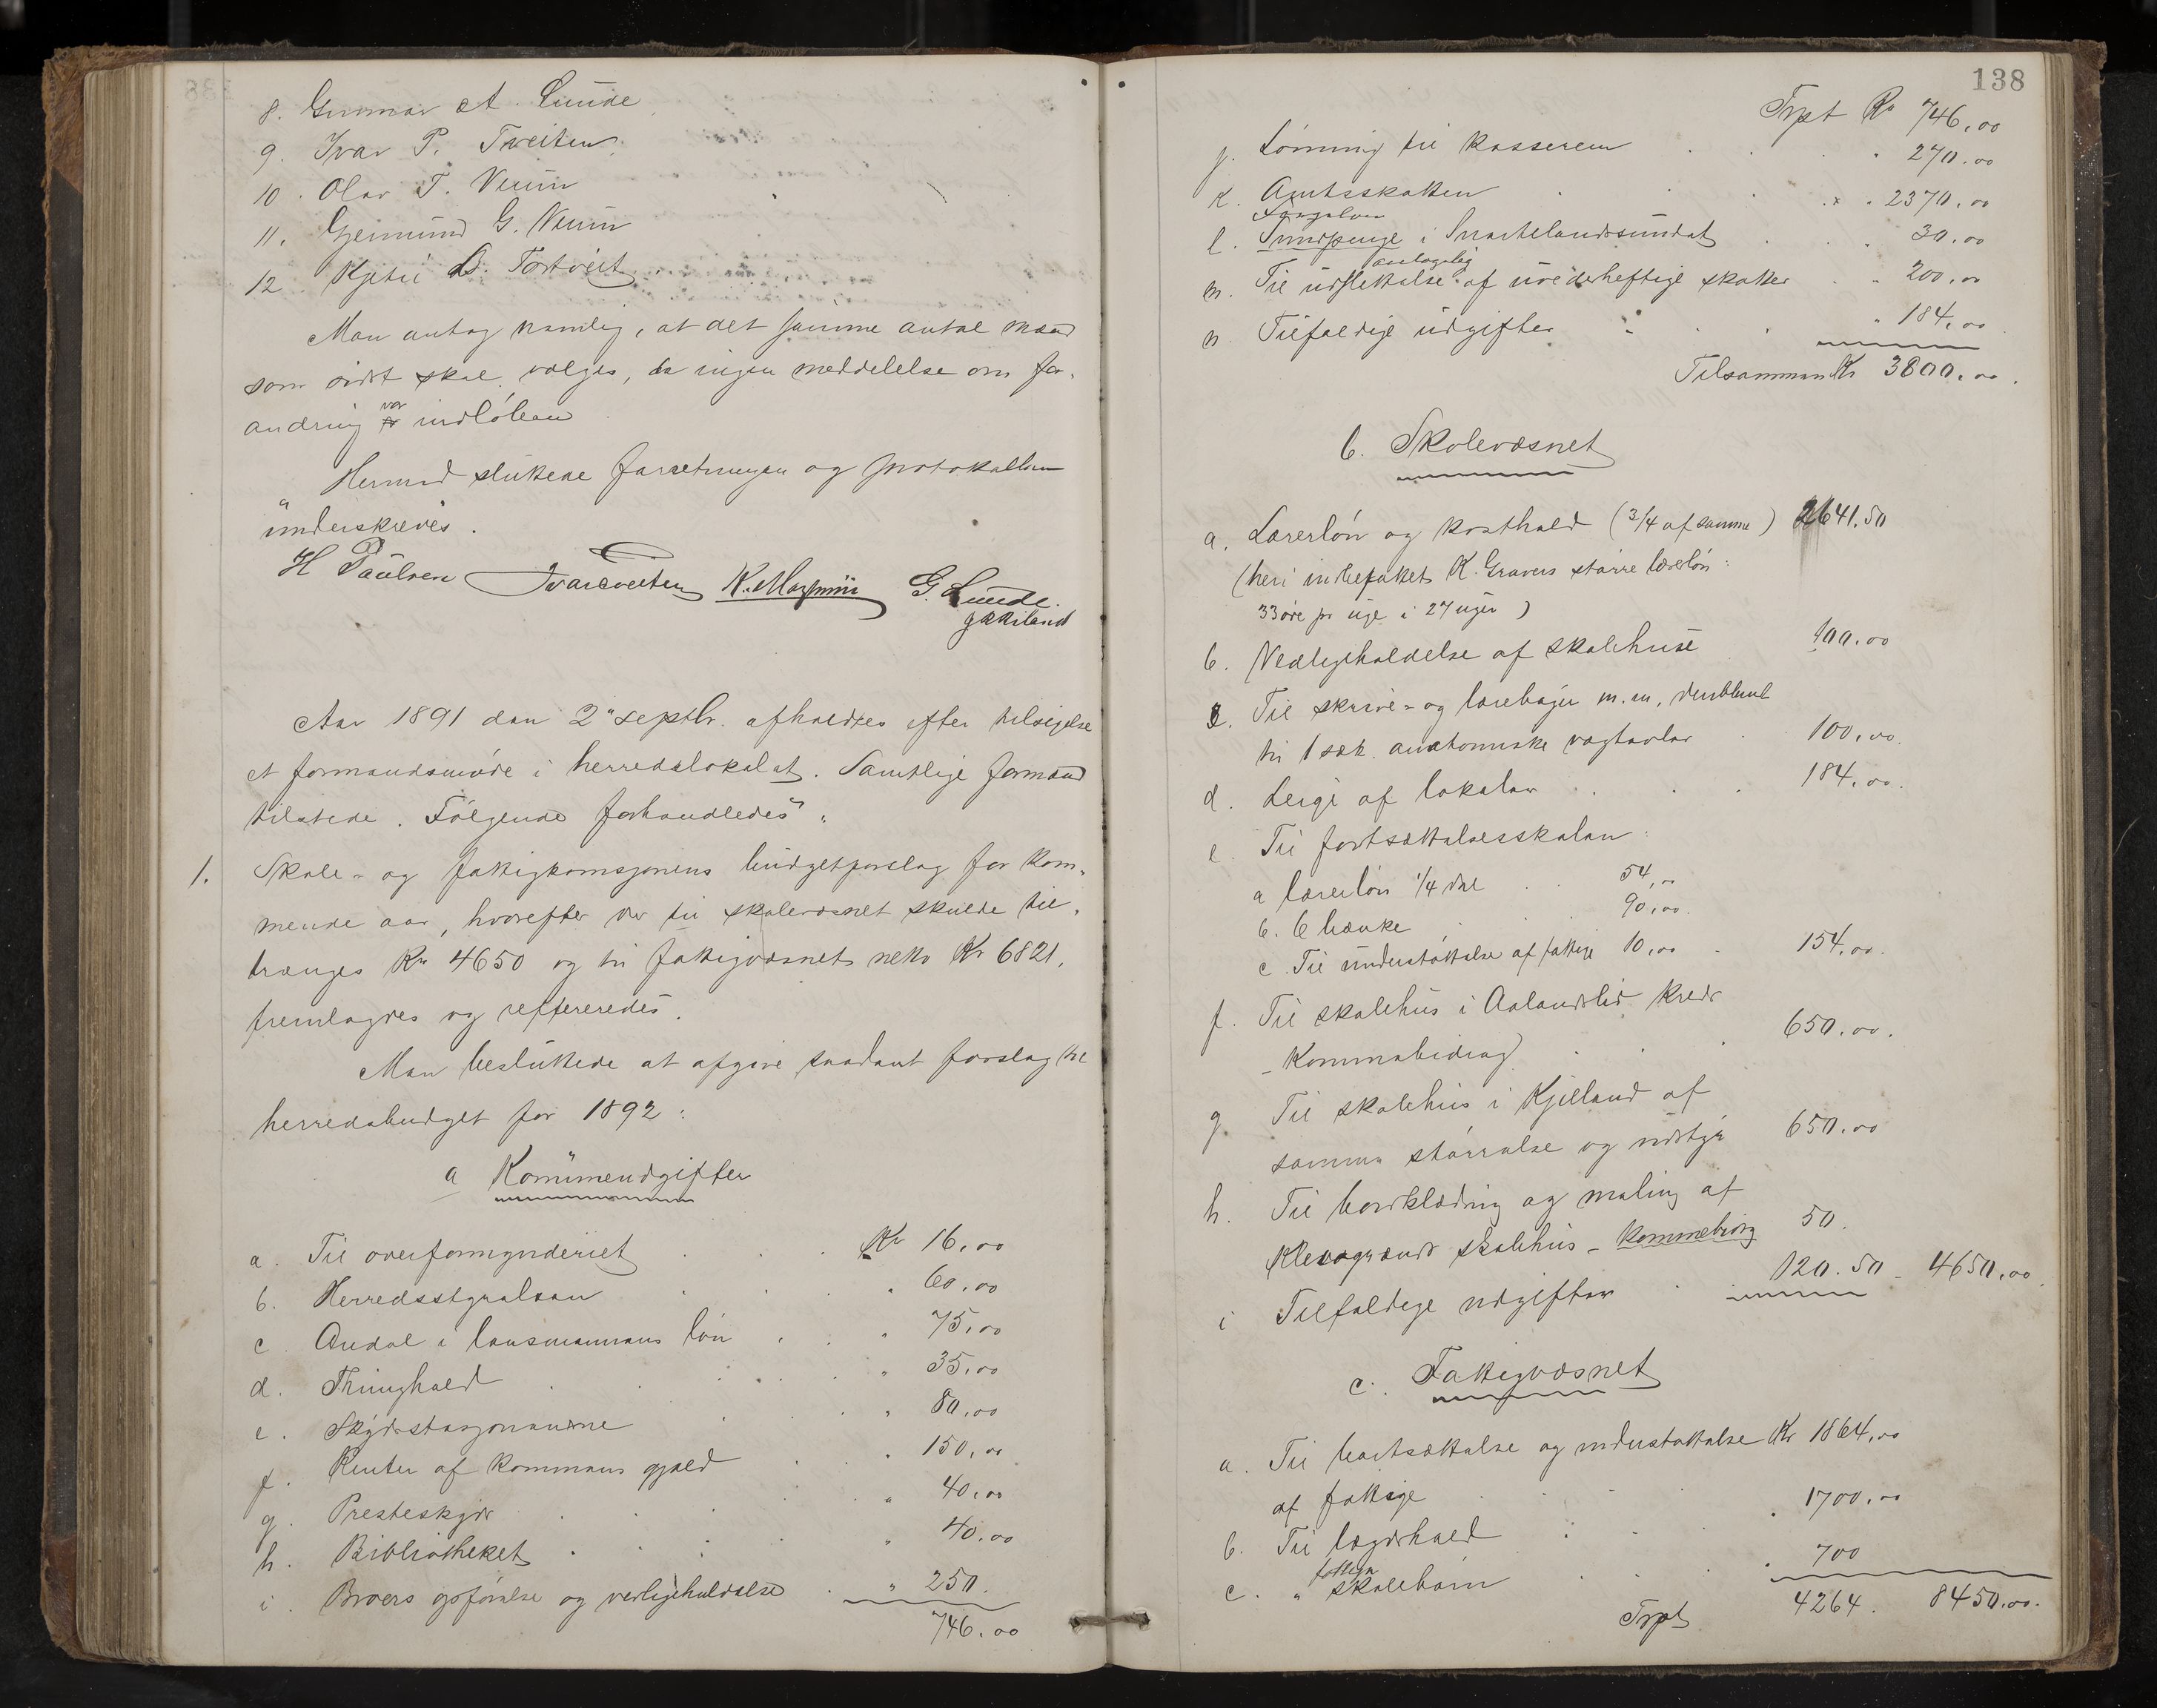 8. Gunnar A. Lunde
9. Ivar P. Tveiten
10. Olav T. Verum
11. Gjermund G. Verum
12. Kjetil D. Tortveit
Man antog nemlig, at det samme antal mænd
som sidst skal vælges, da ingen meddelelse om for-
andring var indløben
Hermed sluttede forretningen og protokollen
underskreves.
H Paulsen Ivar Tveiten K. G. Lunde
Aar 1891 den 2 septbr. afholdtes efter tilsigelse
et formandsmøde i herredslokalet. Samtlige formænd
tilstede. Følgende forhandledes:
1. Skole- og fattigkomsjonens budgetforslag for kom-
mende aar, hvorefter der til skolevæsnet skulde til-
trænges Kr 4650 og til fattigvæsnet netto Kr 6821,
fremlagdes og reffereredes.
Man besluttede at afgive saadant forslag til
herredsbudget for 1892:
a Kommeudgifter
a. Til overformynderiet Kr 16,00
b. Herredsstyrelsen " 60,00
c. Andel i lensmannens løn " 75,00
d. Thinghold " 35,00
e. Skydsstasjonerne " 80,00
f. Renter af kommuns gjæld " 150,00
g. Presteskyds " 40,00
h. Bibliotheket " 40,00
i. Broers opførelse og vedligeholdelse " 250.
746,00
138
Trpt Kr 746,00
j. Lønning til kasseren " 270,00
k. Amtsskatten " 2370,00
l. Sundpenge i Snartelandssundet " 30,00
m. Til udslettelse af uvederheftige skatter " 200,00
n. Tilfældige udgifter " 184,00
Tilsammen Kr 3800,00.
b. Skolevæsnet
a. Lærerløn og kosthold (3/4 af samme) 2641.50
(heri indbefattet K. Gravers større lærerløn:
33 øre pr uge i 27 uger)
b. Vedligeholdelse af skolehuse 100,00
c. Til skrive- og lærebøger m.m., deriblandt
til 1 sæt anatomiske vægtavler 100,00.
d. Leige af lokaler 184,00.
e. Til fortsættelsesskolen:
a lærerløn 1/4 del 54,00
b. 6 bænke 90,00.
c. Til understøttelse af fattige 10,00 154,00.
f. Til skolehus i Aalandslid kreds
- Kommnebidrag 650.00.
g. Til skolehus i Kjilland af
samme størrelse og udstyr 650.00
h. Til bordklædning og maling af
skolehus - Kommebidrag 50.
i Tilfældige udgifter 120.50 - 4650,00.
c. Fattigvæsnet
a. Til bortsættelse og understøttelse Kr 1864,00
af fattige
b. Til lægdshold " 1700,00
c. " fattige skolebørn " 700
Trpt 4264. 8450.00.